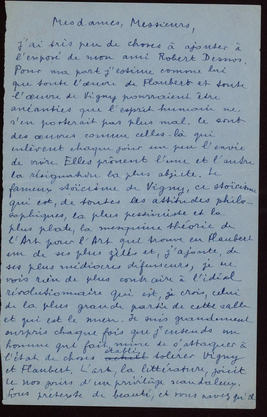 Mesdames, Messieurs,
j'ai très peu de choses à ajouter à
l'exposé de mon ami Robert Desnos.
Pour ma part j'estime comme lui
que toute l'œuvre de Flaubert et toute
l'œuvre de Vigny pourraient être
anéanties que l'esprit humain ne
s'en porterait pas plus mal. Ce sont
des œuvres comme celles-là qui
enlèvent chaque jour un peu l'envie
de vivre. Elles prônent l'une et l'autre
la résignation la plus abjecte. Le
fameux stoïcisme de Vigny, ce stoïcisme
qui est, de toutes les attitudes philo-
sophiques, la plus pessimiste et la
plus plate, la mesquine théorie de
l'Art pour l'Art que trouve en Flaubert
un de ses plus zélés et, j'ajoute, de
ses plus médiocres défenseurs, je ne
vois rien de plus contraire à l'idéal
révolutionnaire qui est, je crois, celui
de la plus grande partie de cette salle
et qui est le mien. Je suis grandement
surpris chaque fois que j'entends un
homme qui fait mine de s'attaquer à
l'état de choses établi tolérer Vigny
et Flaubert. L'art, la littérature, jouit
de nos jours d'un privilège scandaleux.
Sous prétexte de beauté, et vous savez qu'à